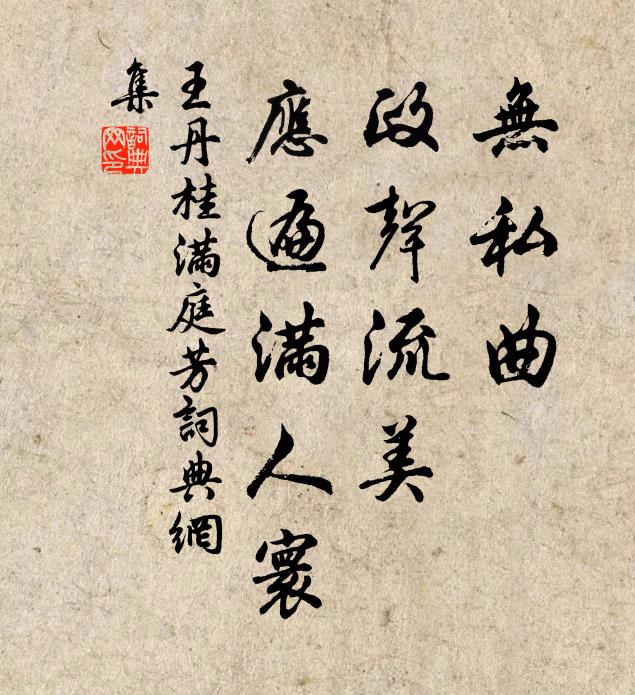 無私曲
政聲流美
應遍滿人寰
王丹桂滿庭芳詞典網
集
詞典
网印